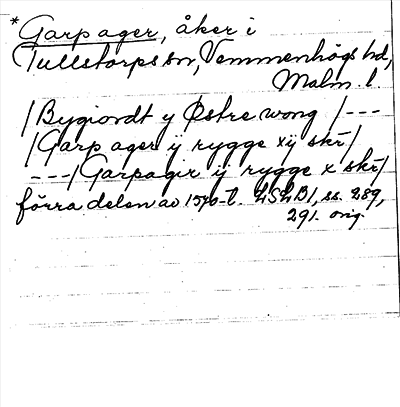 *Garpager, åker i
Tullstorps sn, Vemmenhögs hd,
Malm. l.
/Bygiordt y Østre wong /---
/Garp ager ÿ rygge xÿ skr/
---/Garpagir ÿ rygge x skr/
förra delen av 1570-t. LSLB1, ss. 289,
291. orig.